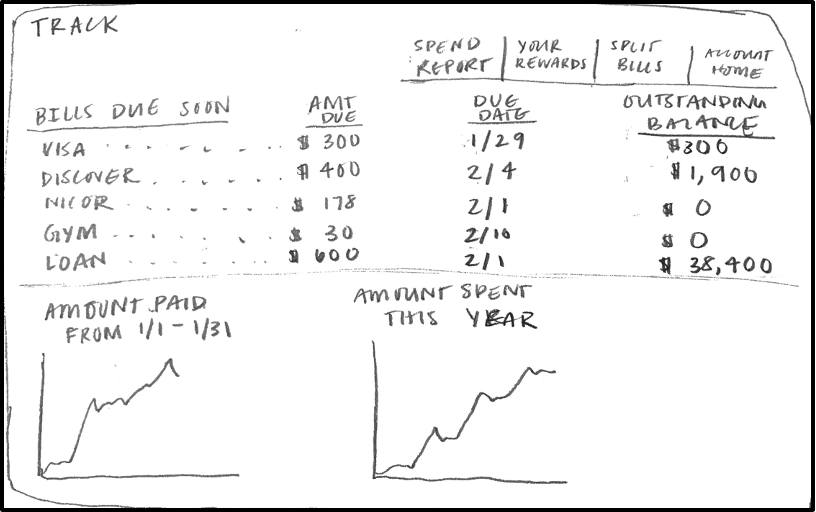 TRACK
SPEND REPORT | YOUR REWARDS | SPLIT BILLS | ACCOUNT HOME
BILLS DUE SOON AMT DUE DUE DATE OUTSTANDING BALANCE
VISA . . . . . . $ 300 1/29 $300
DISCOVER . . . . . . $ 400 2/4 $1,900
NICOR . . . . . . $ 178 2/1 $ 0
GYM . . . . . . $ 30 2/10 $ 0
LOAN . . . . . . $ 600 2/1 $ 38,400
AMOUNT PAID
FROM 1/1 - 1/31
AMOUNT SPENT
THIS YEAR